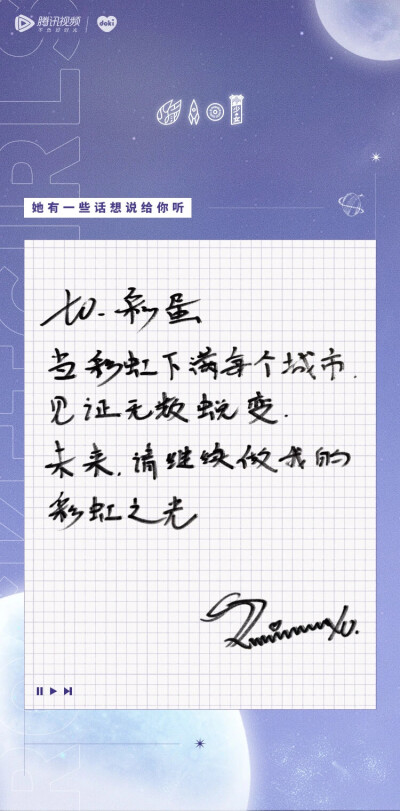 腾讯视频
不负好时光
doki
她有一些话想说给你听
to. 彩蛋
当彩虹下满每个城市.
见证无数蜕变.
未来, 请继续做我的
彩虹之光
ROCKET GIRLS